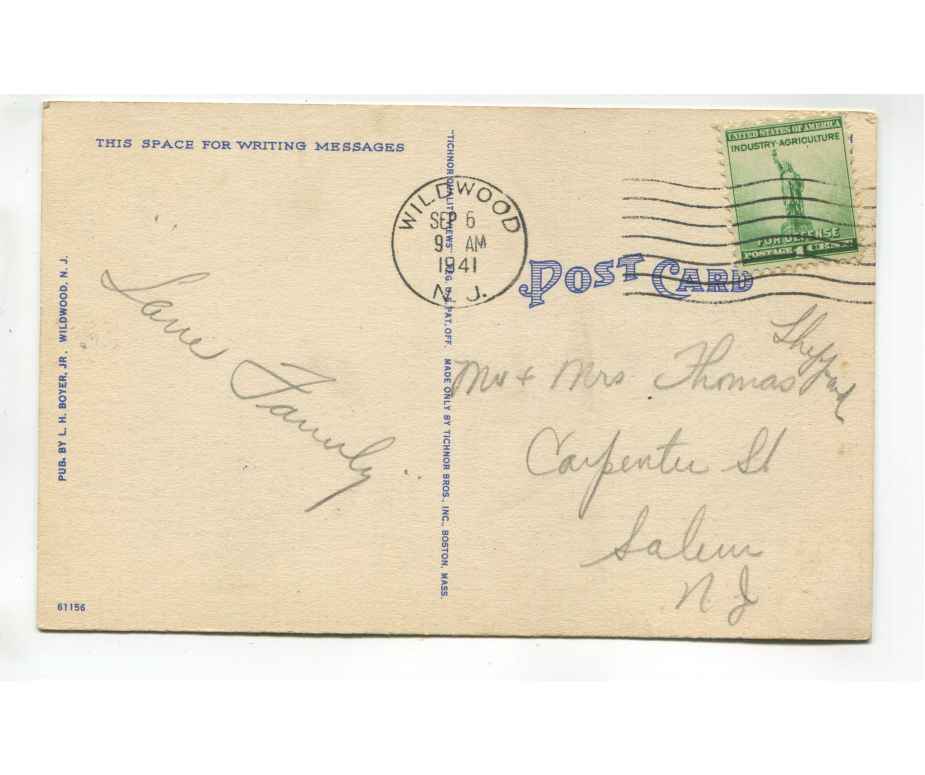 THIS SPACE FOR WRITING MESSAGES
Lane Family.
PUB. BY L. H. BOYER, JR. WILDWOOD, N. J.
61156
"TICHNOR QUALITY VIEWS" REG. U.S. PAT. OFF. MADE ONLY BY TICHNOR BROS., INC., BOSTON, MASS.
WILDWOOD
SEP 6
9 AM
1941
N. J.
UNITED STATES OF AMERICA
INDUSTRY·AGRICULTURE
FOR DEFENSE
POSTAGE 1 CENT
POST CARD
Mr + Mrs Thomas Sheppard
Carpenter St
Salem
N J